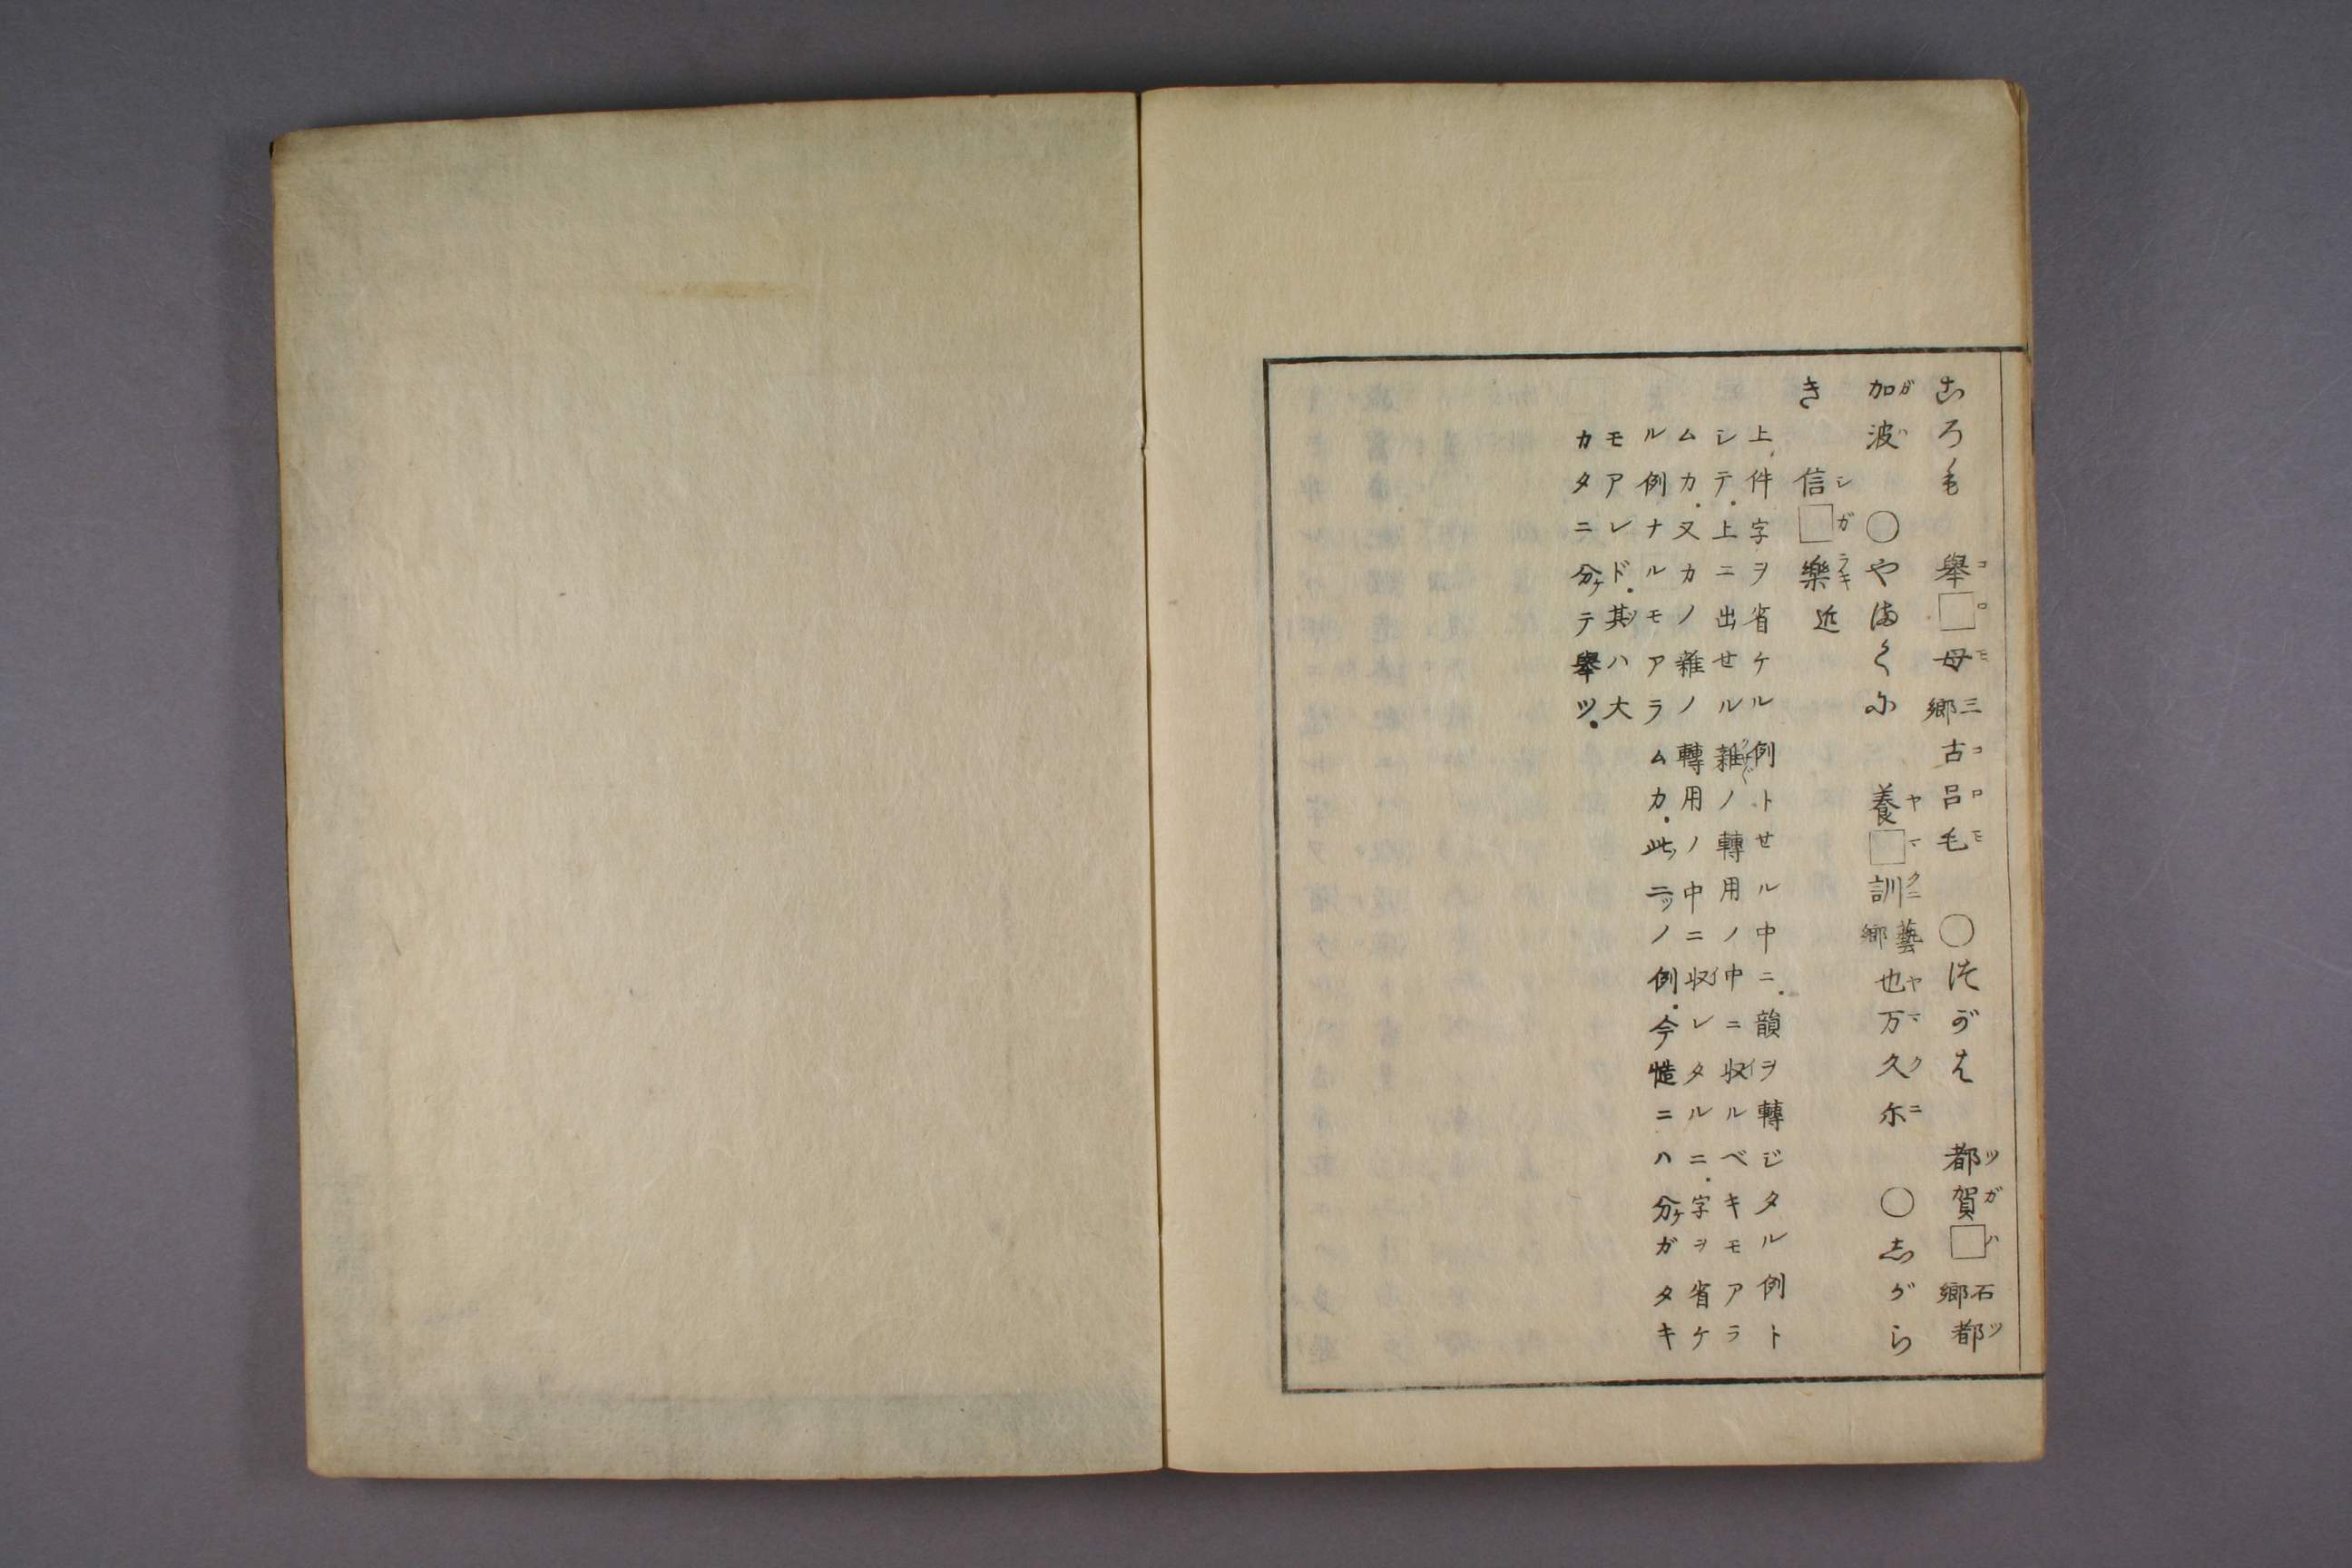 ころも　擧□母三郷古呂毛　○つがは　都賀□石郷都
加波　○やまくに　養□訓藝郷也万久尓　○しがら
き　信□樂近
上ノ件字ヲ省ケル例トセル中ニ．韻ヲ轉ジタル例ト
シテ．上ニ出せル雜ノ轉用ノ中ニ収ルベキモアラ
ムカ．又カノ雜ノ轉用ノ中ニ収レタルニ．字ヲ省ケ
ル例ナルモアラムカ．此ノ二ッノ例．今慥ニハ分ケガタキ
モアレド．其ハ大
カタニ分ケテ擧ツ．